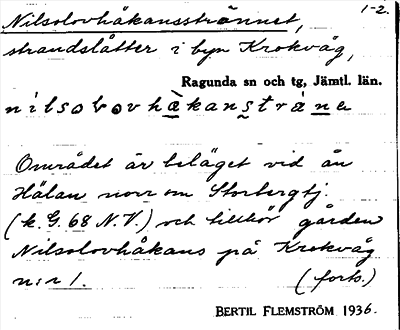 1-2.
Nilsolovhåkansstrännet,
strandslåtter i byn Krokvåg,
Ragunda sn och tg, Jämtl. län.
nilsolovhåkanstränα
Området är beläget vid ån
Hålan norr om Storbergtj.
(k. G. 68 N.V.) och tillhör gården
Nilsolovhåkans på Krokvåg
n:r 1. (forts.)
BERTIL FLEMSTRÖM 1936.